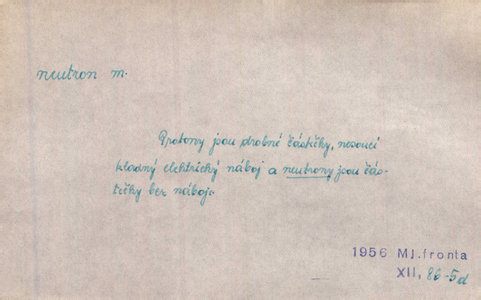 neutron m.
Protony jsou drobné částičky, nesoucí
kladný elektrický náboj a neutrony jsou čás-
tičky bez náboje.
1956 Ml.fronta
XII, 86-5d